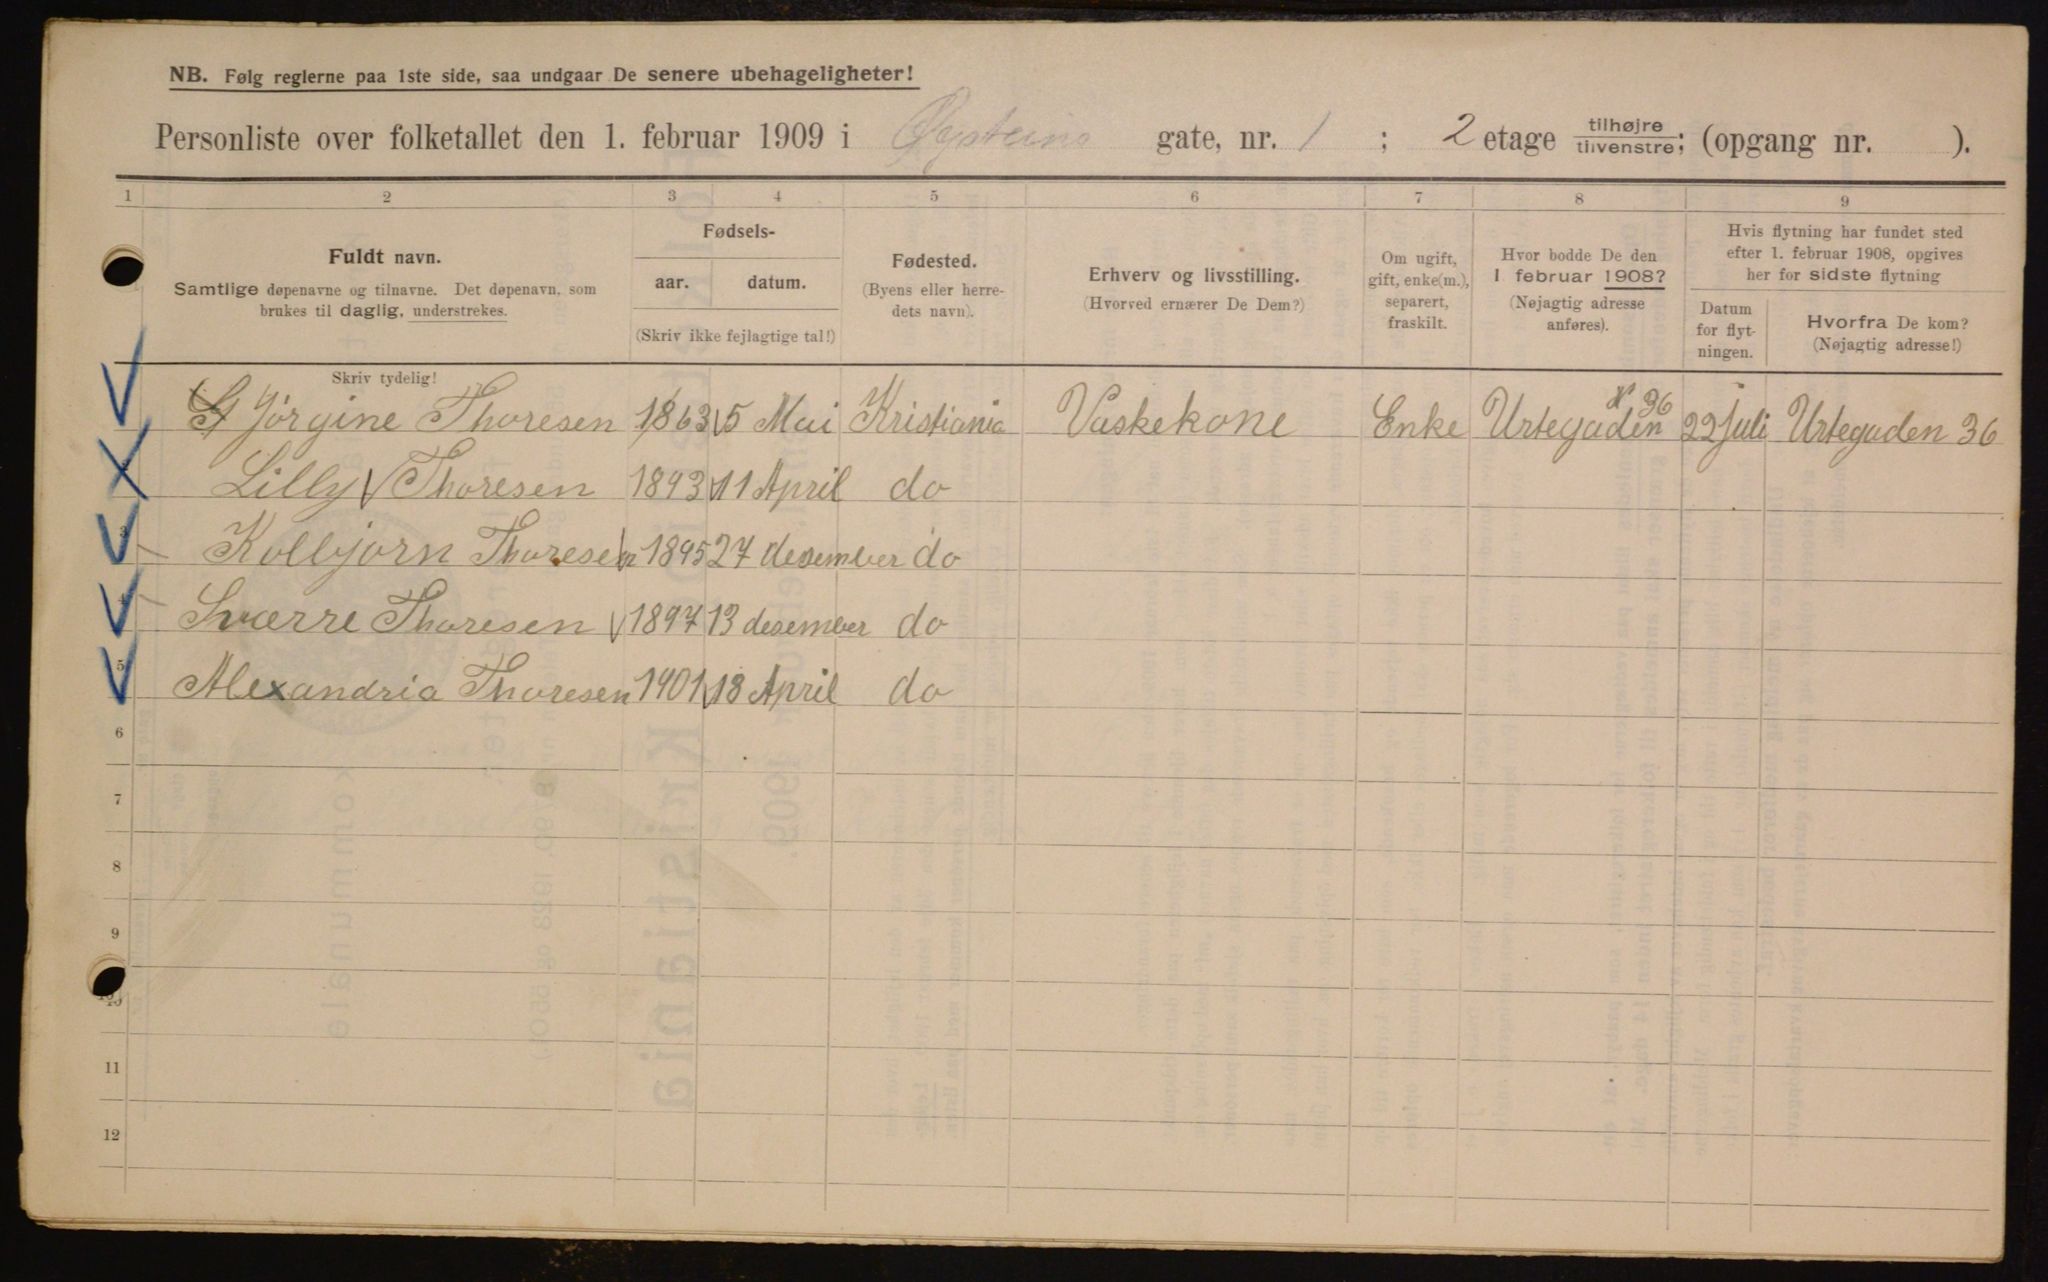 NB. Følg reglerne paa 1ste side, saa undgaar De senere ubehageligheter!
Personliste over folketallet den 1. februar 1909 i Øysteins gate, nr. 1 ; 2 etage tilhøjre tilvenstre; (opgang nr. ).
1 2 3 4 5 6 7 8 9
Fuldt navn.
Samtlige døpenavne og tilnavne. Det døpenavn, som
brukes til daglig, understrekes.
Fødsels-
aar. datum.
(Skriv ikke fejlagtige tal!)
Fødested.
(Byens eller herre-
dets navn).
Erhverv og livsstilling.
(Hvorved ernærer De Dem?)
Om ugift,
gift, enke(m.),
separert,
fraskilt.
Hvor bodde De den
1 februar 1908?
(Nøjagtig adresse
anføres).
Hvis flytning har fundet sted
efter 1. februar 1908, opgives
her for sidste flytning
Datum
for flyt-
ningen.
Hvorfra De kom?
(Nøjagtig adresse!)
Skriv tydelig!
Jørgine Thoresen 1863 5 Mai Kristiania Vaskekone Enke Urtegaden 36 22 Juli Urtegaden 36
Lilly Thoresen 1893 11 April do
3 Kolbjørn Thoresen 1895 27 desember do
4 Sværre Thoresen 1897 13 desember do
5 Alexandria Thoresen 1901 18 April do
6
7
8
9
10
11
12